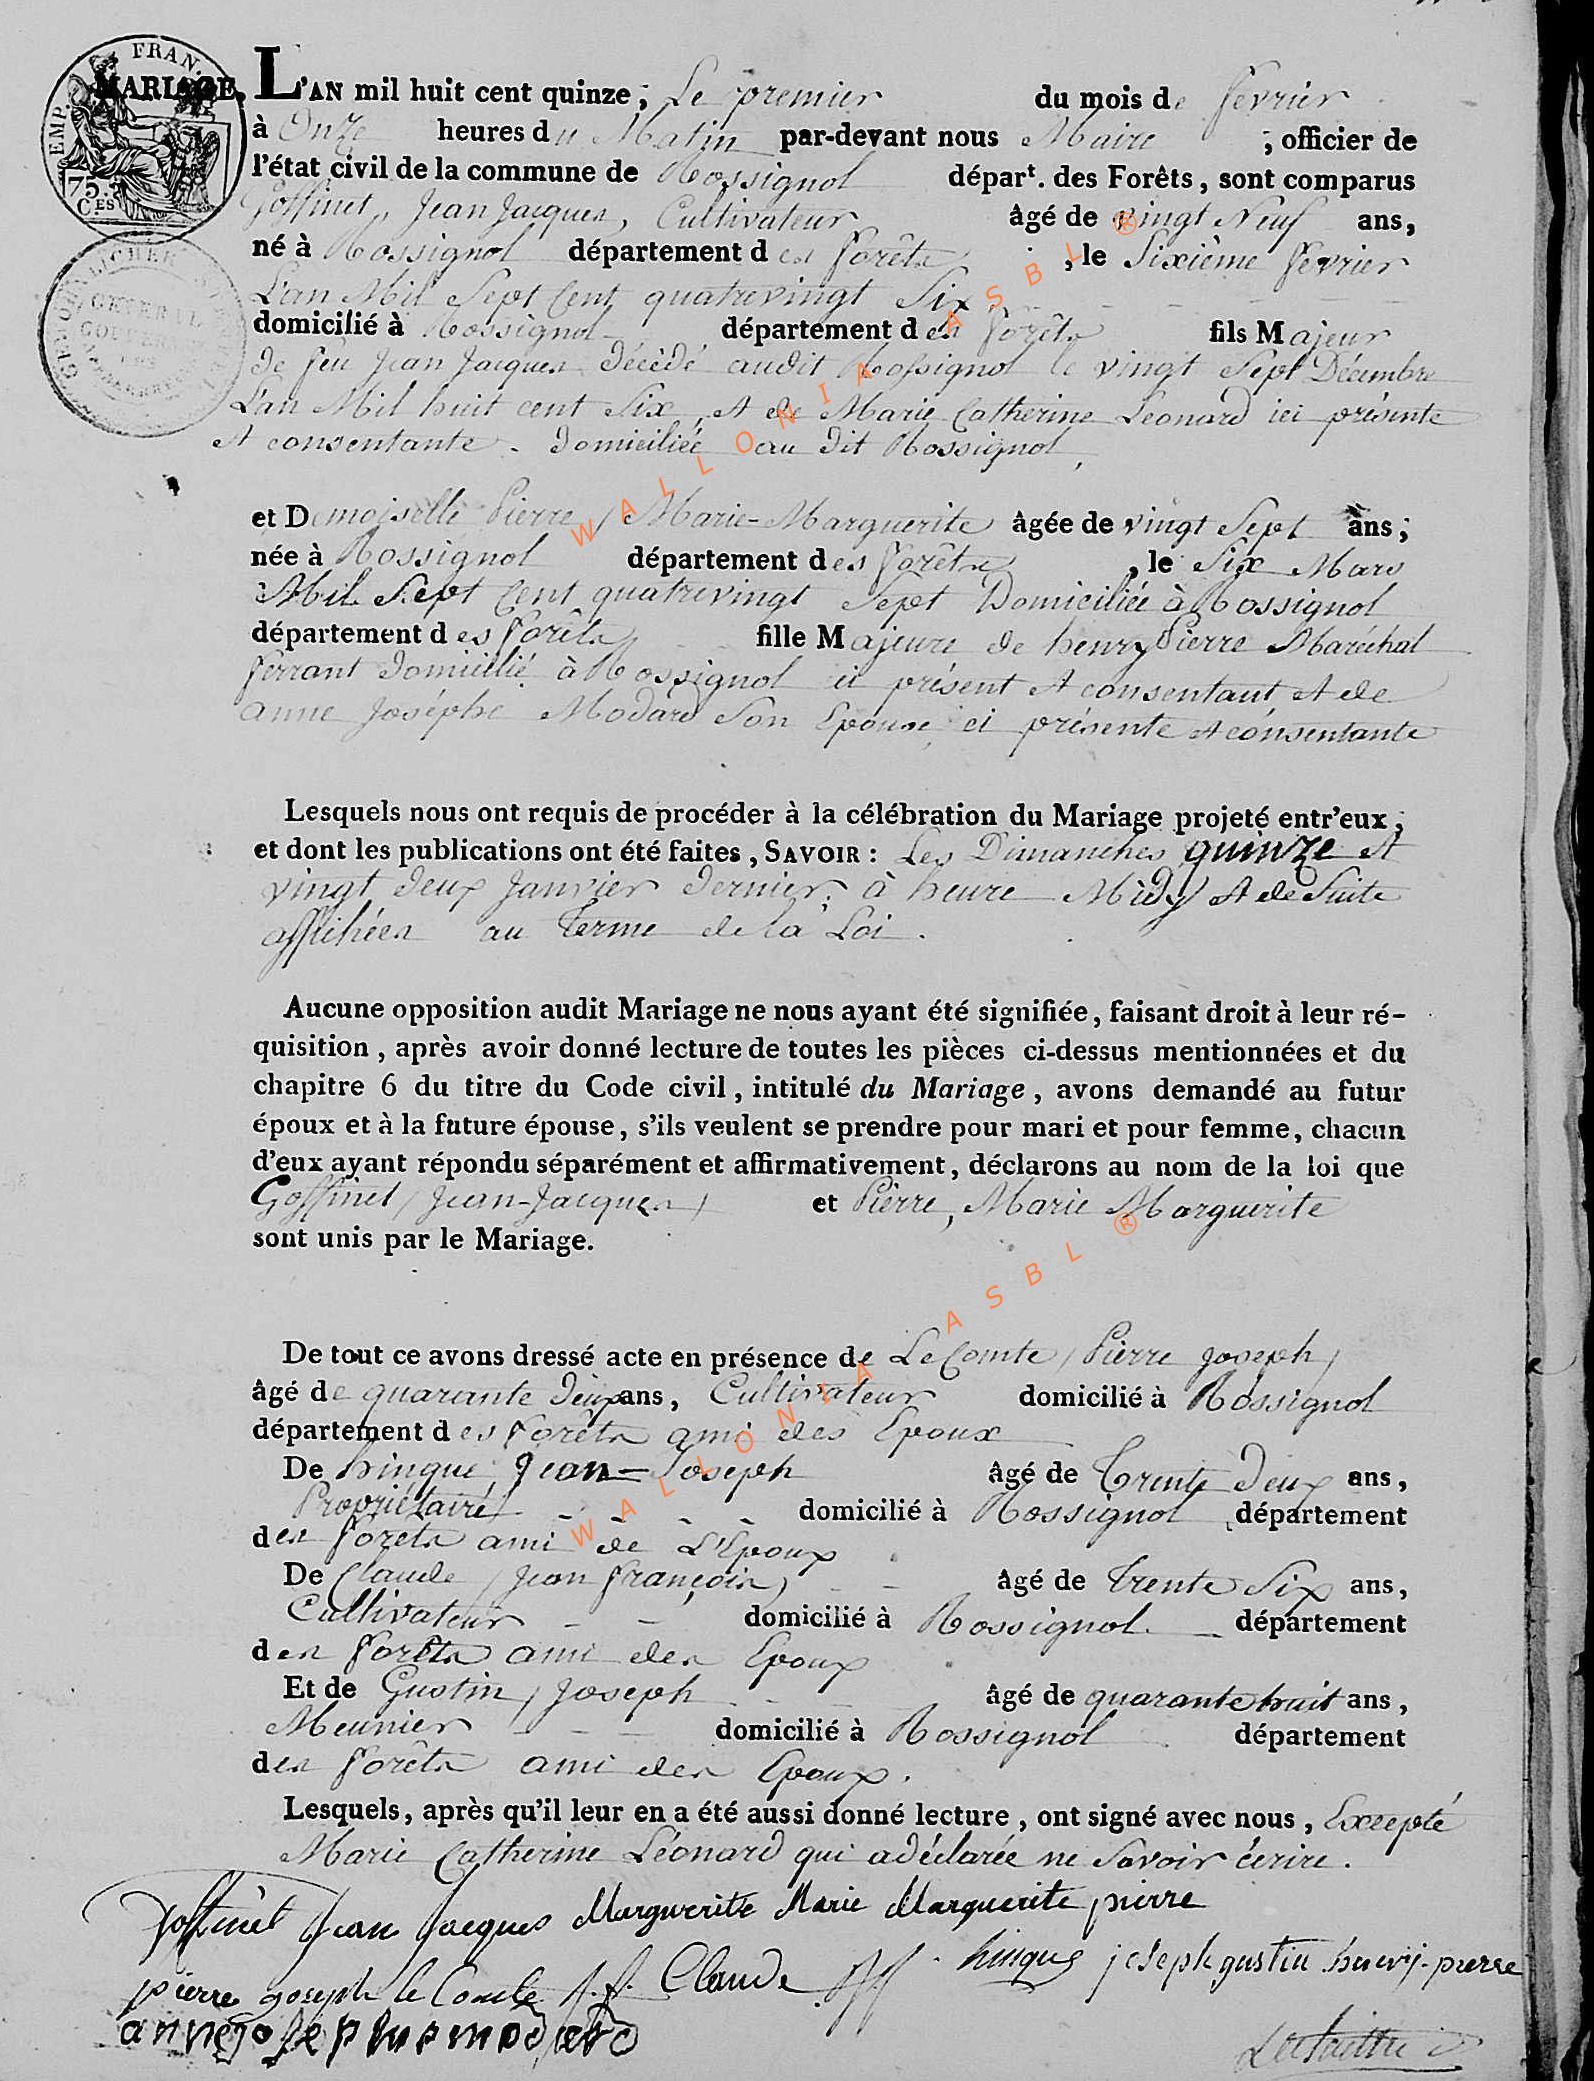 EMP. FRAN.
75.
C.ES
MARIAGE. L'AN mil huit cent quinze, Le premier du mois de février
à Onze heures du Matin par-devant nous Maire ; officier de
l'état civil de la commune de Rossignol dépar.t des Forêts, sont comparus
Goffinet, Jean Jacques, Cultivateur âgé de vingt Neuf ans,
né à Rossignol département des forêts, le Sixième février
L'an Mil Sept Cent quatrevingt Six
domicilié à Rossignol département des forêts fils Majeur
de feu Jean Jacques décédé audit Rossignol le vingt Sept Décembre
L'an Mil huit cent Six, et de Marie Catherine Léonard ici présente
et consentante. domiciliée au dit Rossignol,
et Demoiselle Pierre, Marie-Marguerite âgée de vingt Sept ans ;
née à Rossignol département des forêts, le Six Mars
Mil Sept Cent quatrevingt Sept Domiciliée à Rossignol
département des forêts fille Majeure de henry Pierre Maréchal
ferrant domicilié à Rossignol ici présent et consentant et de
anne Joséphe Modard Son Epouse ici présente et consentante
Lesquels nous ont requis de procéder à la célébration du Mariage projeté entr'eux,
et dont les publications ont été faites, SAVOIR : Les Dimanches quinze et
vingt deux Janvier dernier, à heure Midy et de Suite
affichées au terme de la Loi.
Aucune opposition audit Mariage ne nous ayant été signifiée, faisant droit à leur ré-
quisition, après avoir donné lecture de toutes les pièces ci-dessus mentionnées et du
chapitre 6 du titre du Code civil, intitulé du Mariage, avons demandé au futur
époux et à la future épouse, s'ils veulent se prendre pour mari et pour femme, chacun
d'eux ayant répondu séparément et affirmativement, déclarons au nom de la loi que
Goffinet, Jean-Jacques, et Pierre, Marie Marguerite
sont unis par le Mariage.
De tout ce avons dressé acte en présence de LeComte, Pierre Joseph,
âgé de quarante deux ans, Cultivateur domicilié à Rossignol
département des forêts ami des Epoux
De hinque, Jean-Joseph âgé de trente deux ans,
Propriétaire domicilié à Rossignol département
des forêts ami de L'Epoux
De Claude, Jean françois, âgé de trente Six ans,
Cultivateur domicilié à Rossignol. département
des forêts ami des Epoux
Et de Gustin, Joseph âgé de quarante huit ans,
Meunier domicilié à Rossignol département
des forêts ami des Epoux.
Lesquels, après qu'il leur en a été aussi donné lecture, ont signé avec nous, Excepté
Marie Catherine Léonard qui a déclarée ne Savoir écrire.
Goffinet Jean Jacques Marguerite Marie Marguerite pierre
pierre joseph le Comte J. f. Claude hinque joseph gustin henry pierre
anne josephe modard
WALLONIA ASBL ®
WALLONIA ASBL ®